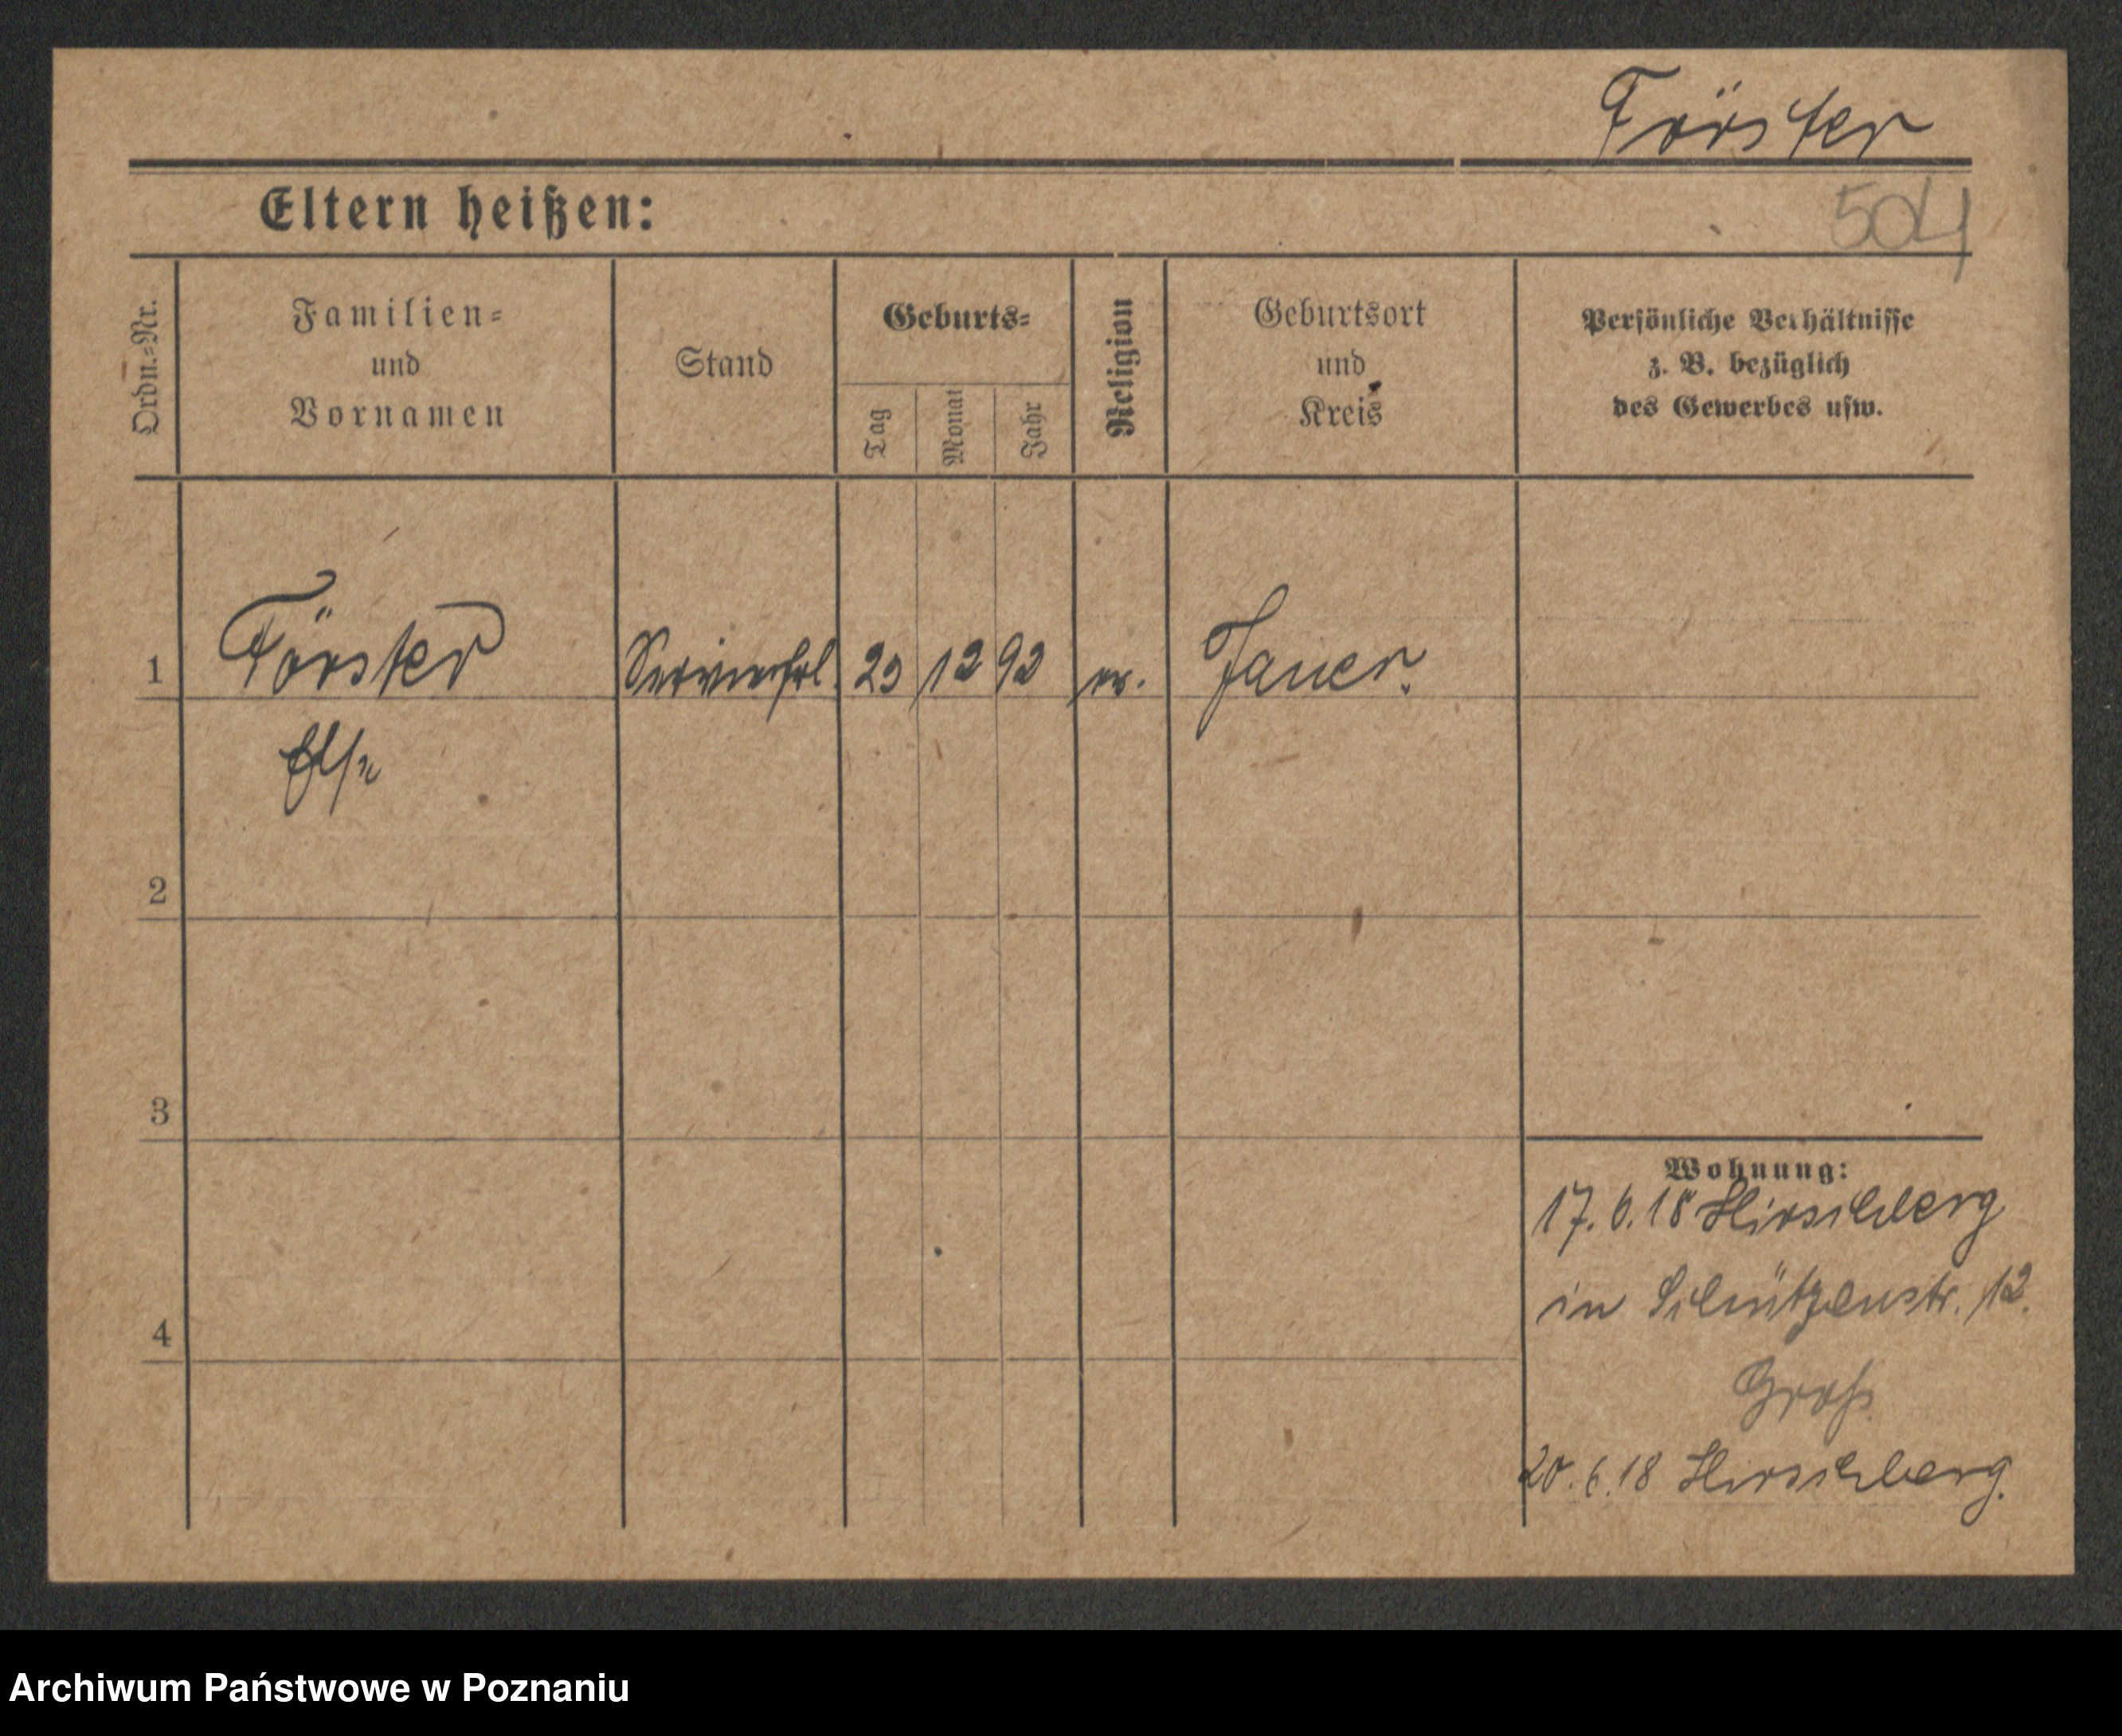 Förster
Eltern heißen:
504
Ordn.-Nr.
Familien-
und
Vornamen
Stand
Geburts-
Tag
Monat
Jahr
Religion
Geburtsort
und
Kreis
Persönliche Verhältnisse
z. B. bezüglich
des Gewerbes usw.
1 Förster Servierfrl. 23 12 92 ev. Jauer.
Else
2
3
4
Wohnung:
17.6.18 Hirschberg
in Schützenstr. 12.
Groß
20.6.18 Hirschberg.
Archiwum Państwowe w Poznaniu